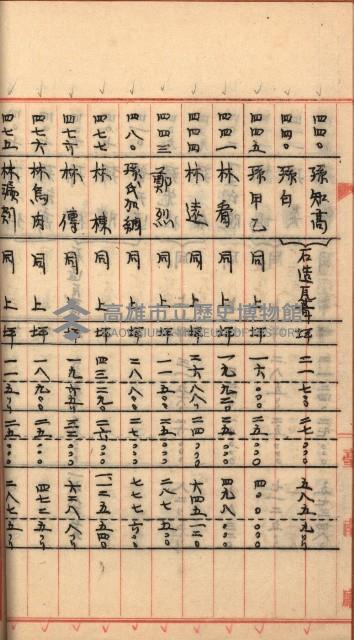 四四〇 孫知高 石造瓦葺 坪 二一、七〇〇 二七、〇〇〇 五八五、九〇
四四〇 孫白
四四五 孫甲乙 同上 坪 一六、〇〇〇 二五、〇〇〇 四〇〇、〇〇〇
四四一 林看 同上 坪 一九、九二〇 二五、〇〇〇 四九八、〇〇〇
四四四 林遠 同上 坪 二六、八八〇 二四、〇〇〇 六四五、一二〇
四四三 鄭烈 同上 坪 一一、五〇〇 二五、〇〇〇 二八七、五〇〇
四八〇 孫氏加納 同上 坪 二八、八〇〇 二七、〇〇〇 七七七、六〇〇
四七七 林棟 同上 坪 四三、二九〇 二六、〇〇〇 一一二五、五四〇
四七六 林傳 同上 坪
四七六 林烏肉 同上 坪 一八、九〇〇 二五、〇〇〇 四七二、五〇
四七五 林 同上 坪 一一、五〇 二五、〇〇〇 二八七、五〇
高雄市立歷史博物館